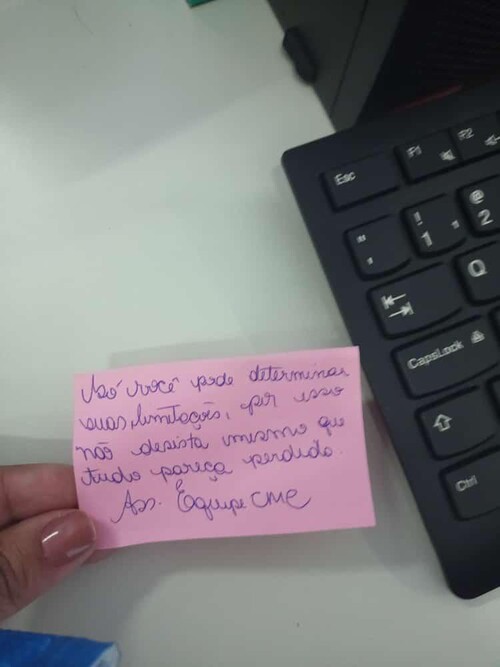 Só você pode determinar
suas limitações, por isso
não desista mesmo que
tudo pareça perdido.
Ass. Equipe CME
Esc
F1
F2
"
'
!
1
@
2
Q
CapsLock
Ctrl